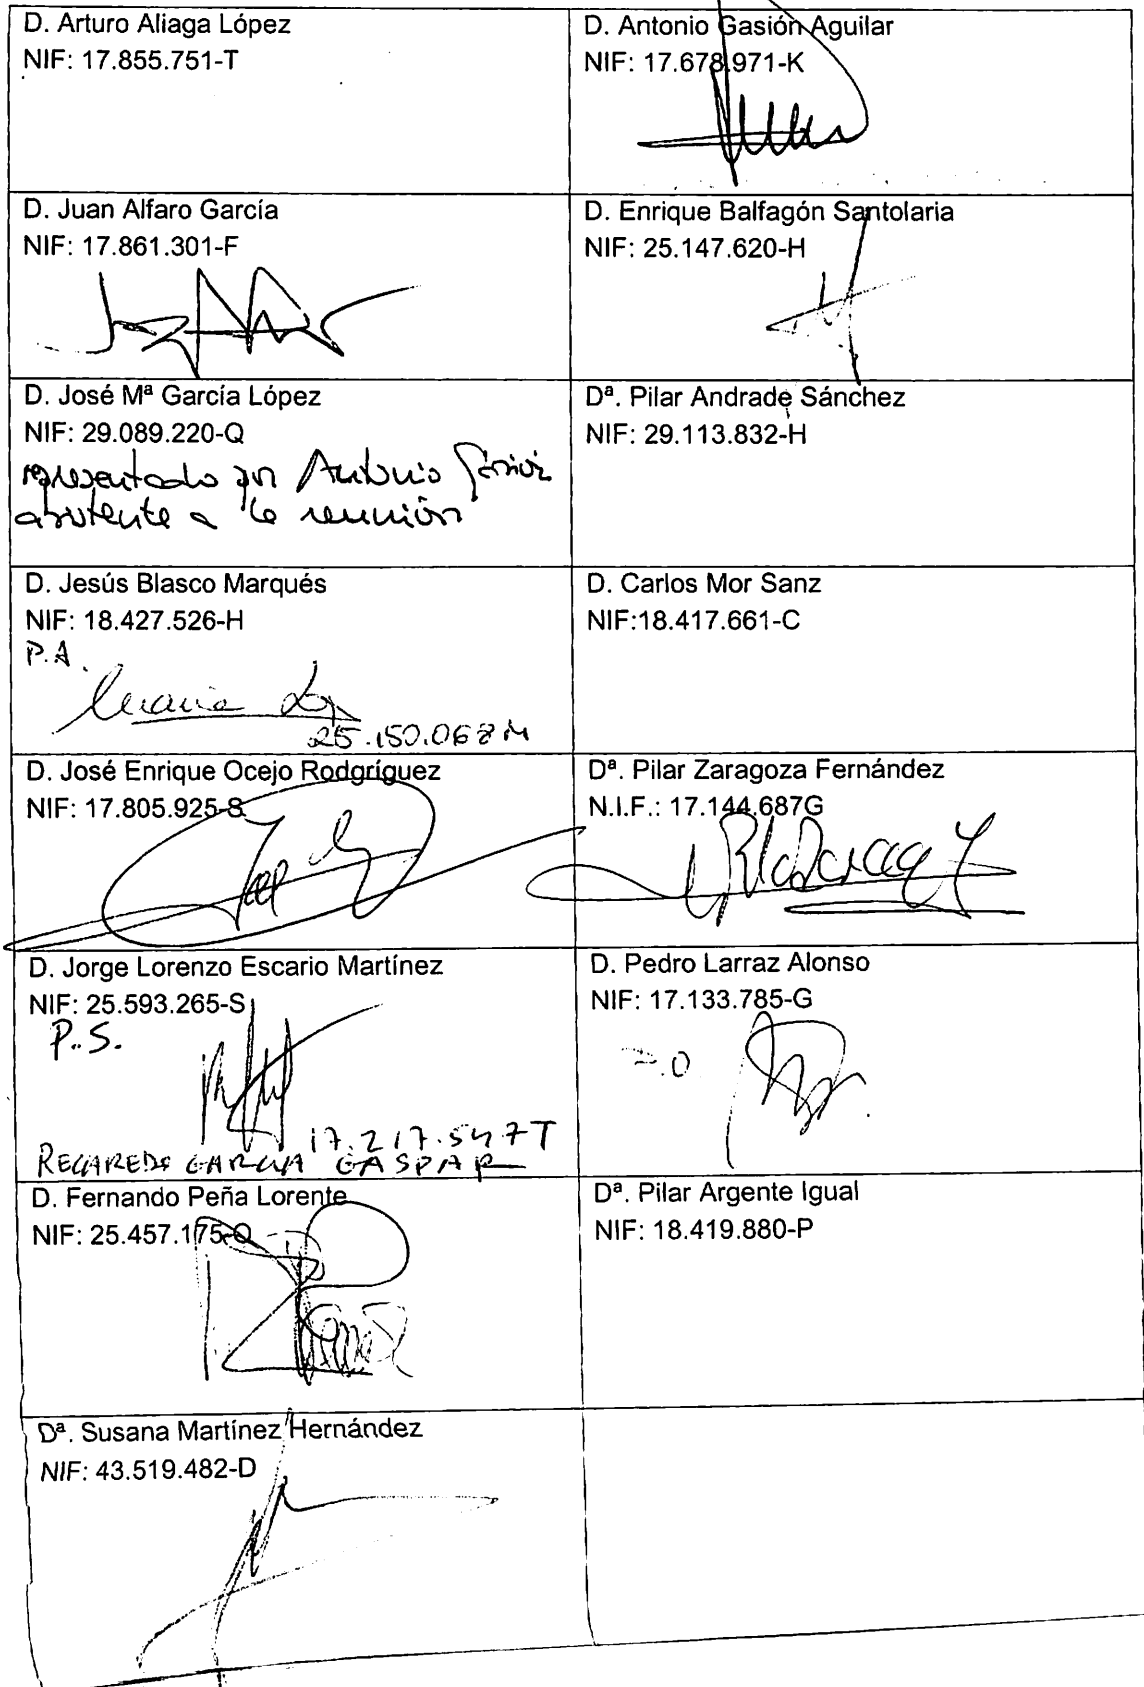 D. Arturo Aliaga López
NIF: 17.855.751-T
D. Antonio Gasión Aguilar
NIF: 17.678.971-K
D. Juan Alfaro García
NIF: 17.861.301-F
D. Enrique Balfagón Santolaria
NIF: 25.147.620-H
D. José Mª García López
NIF: 29.089.220-Q
representado por Antonio
asistente a la reunión
Dª. Pilar Andrade Sánchez
NIF: 29.113.832-H
D. Jesús Blasco Marqués
NIF: 18.427.526-H
P.A.
25.150.068 M
D. Carlos Mor Sanz
NIF:18.417.661-C
D. José Enrique Ocejo Rodgríguez
NIF: 17.805.925-S
Dª. Pilar Zaragoza Fernández
N.I.F.: 17.144.687G
D. Jorge Lorenzo Escario Martínez
NIF: 25.593.265-S
P.S.
17.217.547 T
RECAREDO GARCIA GASPAR
D. Pedro Larraz Alonso
NIF: 17.133.785-G
D. Fernando Peña Lorente
NIF: 25.457.175-Q
Dª. Pilar Argente Igual
NIF: 18.419.880-P
Dª. Susana Martínez Hernández
NIF: 43.519.482-D